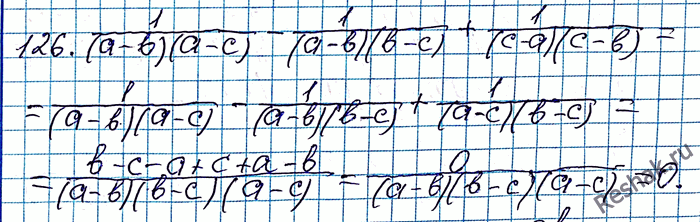 126. 1/((a-b)(a-c)) - 1/((a-b)(b-c)) + 1/((c-a)(c-b)) =
= 1/((a-b)(a-c)) - 1/((a-b)(b-c)) + 1/((a-c)(b-c)) =
= (b-c-a+c+a-b)/((a-b)(b-c)(a-c)) = 0/((a-b)(b-c)(a-c)) = 0.
Reshak.ru